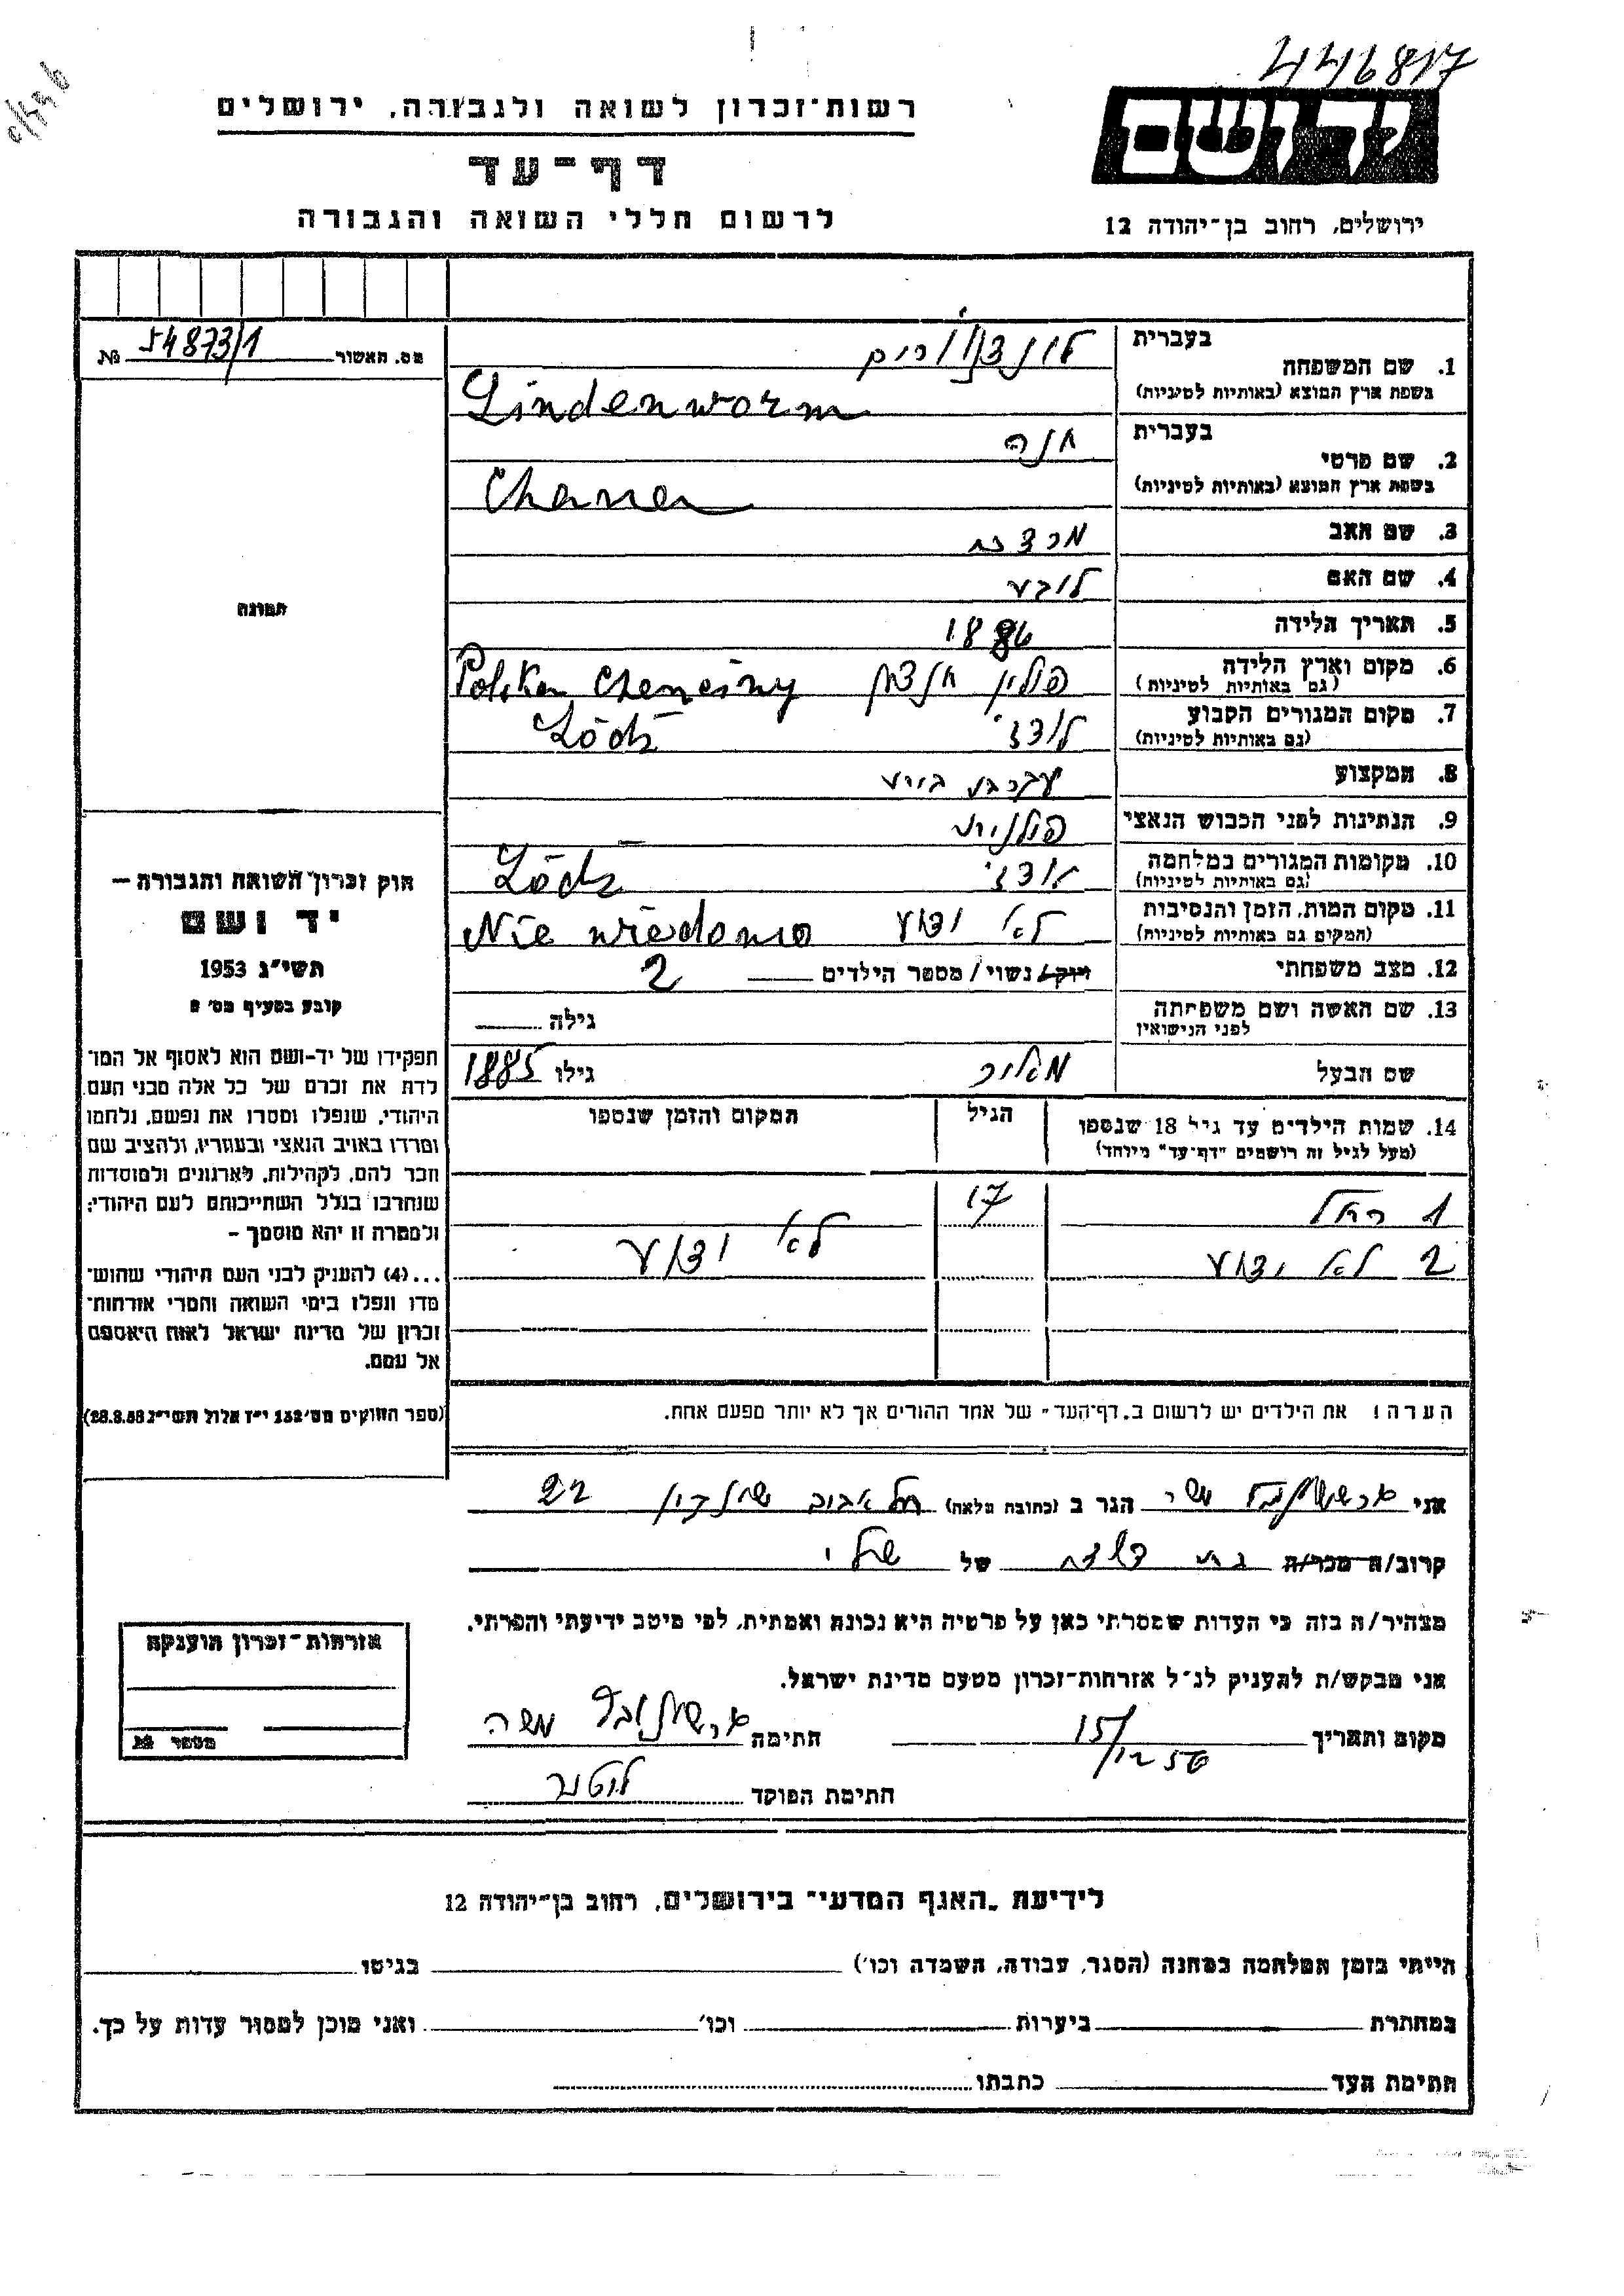 446817
רשות-זכרון לשואה ולגבורה, ירושלים
דף-עד
לרשום חללי השואה והגבורה
יד ושם
ירושלים, רחוב בן-יהודה 12
מס. האשור 54873/1 №
בעברית
1. שם המשפחה
בשפת ארץ המוצא (באותיות לטיניות) Lindenworm
בעברית חנה
2. שם פרטי
בשפת ארץ המוצא (באותיות לטיניות) Chana
3. שם האב מרדכי
4. שם האם ליבע
5. תאריך הלידה 1886
6. מקום וארץ הלידה פולין Polska Checiny
(גם באותיות לטיניות)
7. מקום המגורים הקבוע לודז' Łódź
(גם באותיות לטיניות)
8. המקצוע עקרת בית
9. הנתינות לפני הכבוש הנאצי פולנית
10. מקומות המגורים במלחמה לודז' Łódź
(גם באותיות לטיניות)
11. מקום המות, הזמן והנסיבות לא ידוע Nie wiedomo
(המקום גם באותיות לטיניות)
12. מצב משפחתי רוק/נשוי/מספר הילדים 2
13. שם האשה ושם משפחתה
לפני הנישואין
גילה
שם הבעל מאיר גילו 1885
14. שמות הילדים עד גיל 18 שנספו
(מעל לגיל זה רושמים "דף-עד" מיוחד)
הגיל
המקום והזמן שנספו
1 רחל 17
2 לא ידוע לא ידוע
תמונה
חוק זכרון השואה והגבורה —
יד ושם
תשי"ג 1953
קובע בסעיף מס' 2
תפקידו של יד-ושם הוא לאסוף אל המו־
לדת את זכרם של כל אלה מבני העם
היהודי, שנפלו ומסרו את נפשם, נלחמו
ומרדו באויב הנאצי ובעוזריו, ולהציב שם
וזכר להם, לקהילות, לארגונים ולמוסדות
שנחרבו בגלל השתייכותם לעם היהודי;
ולמטרה זו יהא מוסמך —
...(4) להעניק לבני העם היהודי שהוש־
מדו ונפלו בימי השואה והמרי אזרחות־
זכרון של מדינת ישראל לאות היאספם
אל עמם.
(ספר החוקים מס' 132 י"ז אלול תשי"ג 28.8.53)
הערה! את הילדים יש לרשום ב"דף-העד" של אחד ההורים אך לא יותר מפעם אחת.
אני משה הגר ב (כתובת מלאה) תל אביב 22
קרוב/ה מכר/ה בת דודה של שלי
מצהיר/ה בזה כי העדות שמסרתי כאן על פרטיה היא נכונה ואמתית, לפי מיטב ידיעתי והכרתי.
אני מבקש/ת להעניק לנ"ל אזרחות-זכרון מטעם מדינת ישראל.
מקום ותאריך 15/12 56 חתימה משה
חתימת הפוקד
אזרחות-זכרון הוענקה
מספר №
לידיעת "האגף המדעי" בירושלים, רחוב בן-יהודה 12
הייתי בזמן המלחמה במחנה (הסגר, עבודה, השמדה וכו') בגיטו
במחתרת ביערות וכו' ואני מוכן למסור עדות על כך.
חתימת העד כתבתו